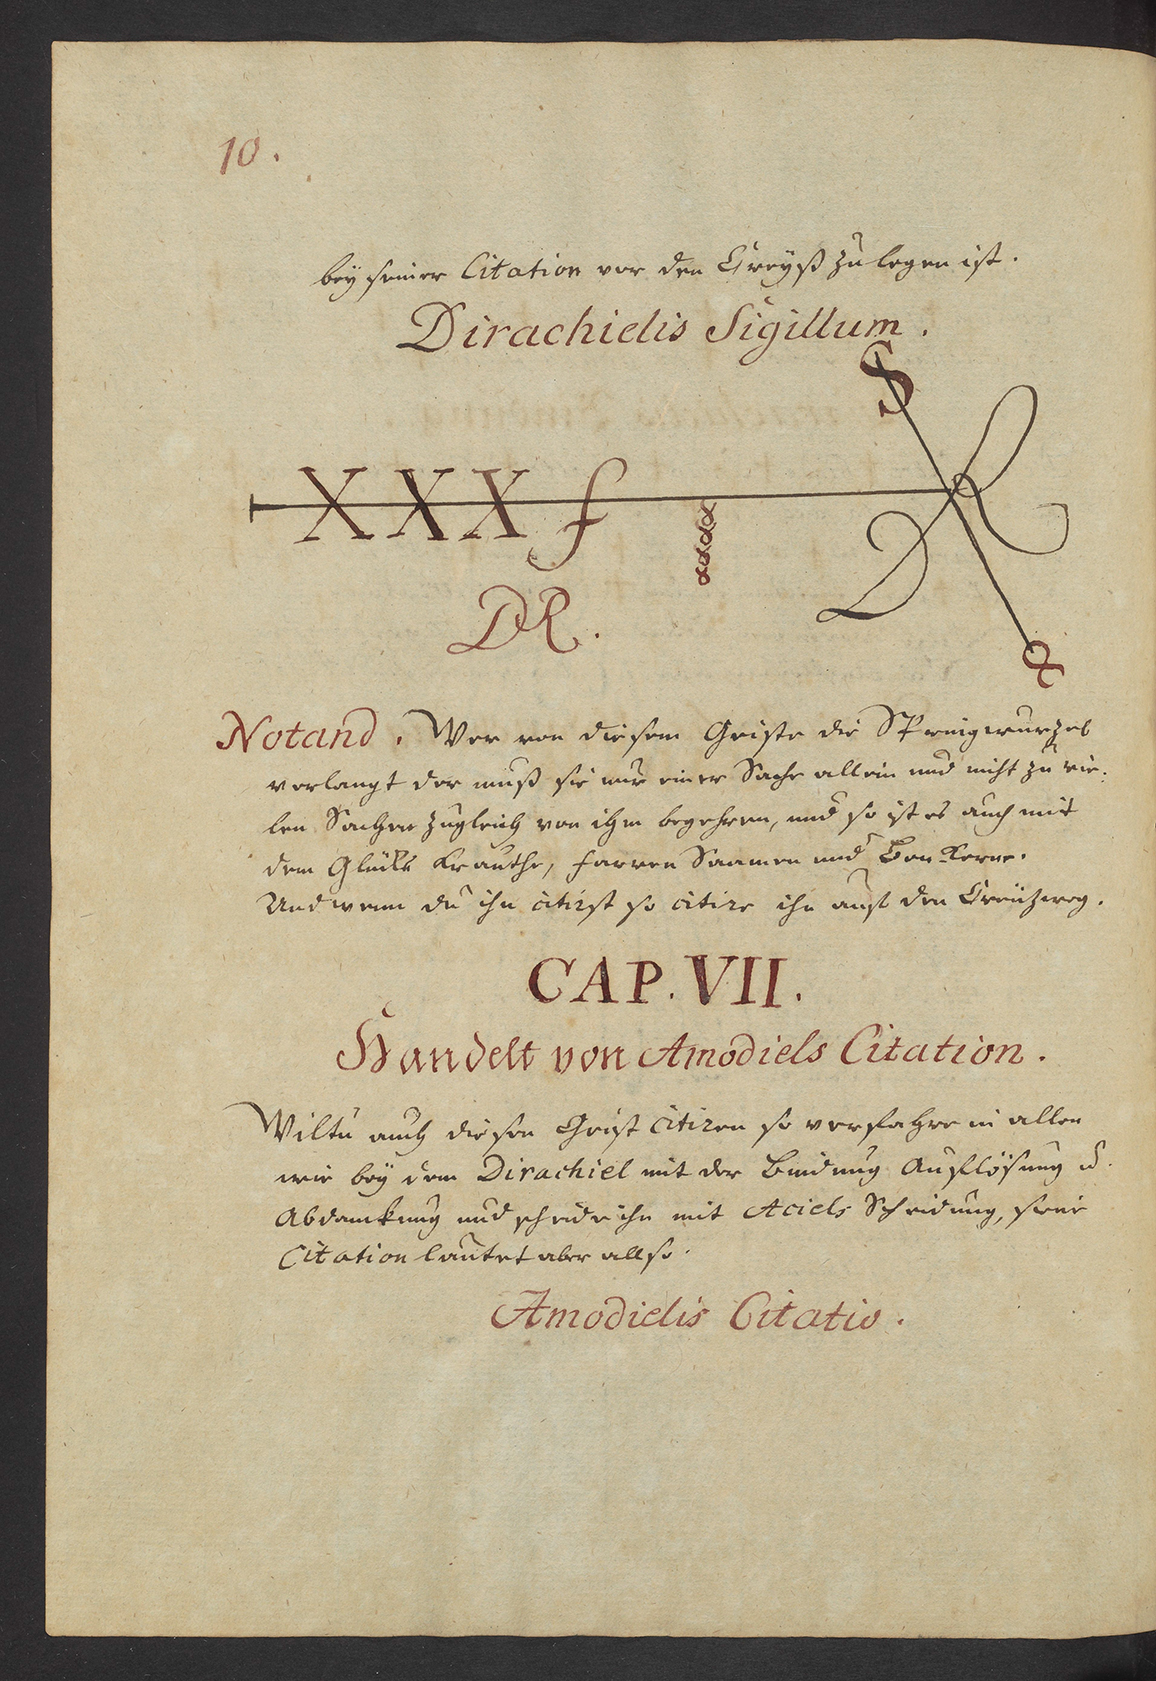 10.
bey seiner Citation vor den Creyß zu legen ist.
Dirachielis Sigillum.
S
X X X f
R
D
DR.
Notand. Wer von diesem Geiste die Springwurzel
verlangt der muß sie nur einer Sache allein und nicht zu vie-
len Sachen zugleich von ihm begehren, und so ist es auch mit
dem Glücks Krauthe, Farren Saamen und
Und wenn du ihn citirst so citire ihn auf den Creützweg.
CAP. VII.
Handelt von Amodiels Citation.
Wiltu auch diesen Geist citiren so verfahre in allen
wie bey dem Dirachiel mit der Bindung Auflösung u.
Abdankung und scheide ihn mit Aciels Scheidung, seine
Citation lautet aber allso.
Amodielis Citatio.